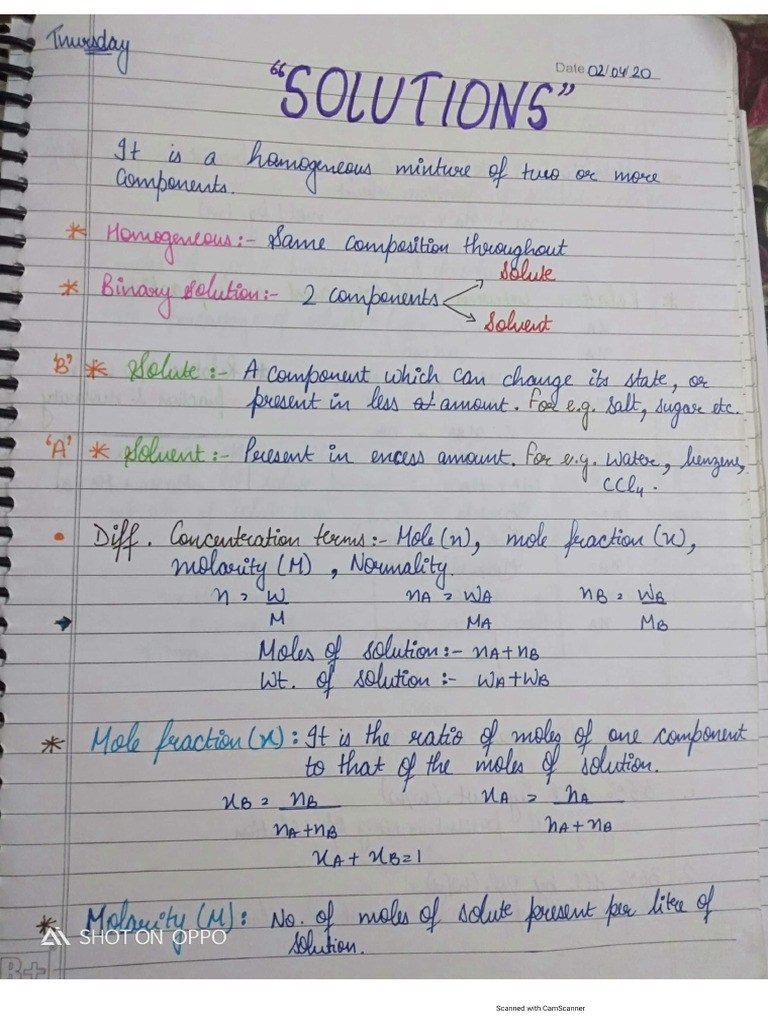 Thursday
Date 02/04/20
"SOLUTIONS"
It is a homogeneous mixture of two or more
components.
* Homogeneous:- Same composition throughout
* Binary solution:- 2 components
Solute
Solvent
'B' * Solute:- A component which can change its state, or
present in less amount. For e.g. salt, sugar etc.
'A' * Solvent:- Present in excess amount. For e.g. Water, benzene,
CCl4.
• Diff. Concentration terms:- Mole (n), mole fraction (x),
molarity (M), Normality.
n = W/M nA = WA/MA nB = WB/MB
Moles of solution:- nA+nB
Wt. of solution:- WA+WB
* Mole fraction (x): It is the ratio of moles of one component
to that of the moles of solution.
xB = nB/nA+nB xA = nA/nA+nB
xA + xB = 1
* Molarity (M): No. of moles of solute present per litre of
solution.
SHOT ON OPPO
B+
Scanned with CamScanner